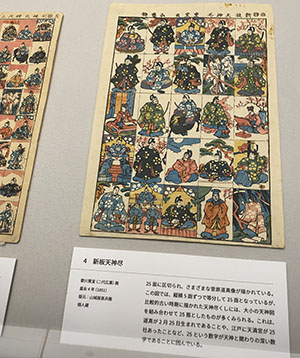 4 新板天神尽
歌川貞重（二代広重）画
嘉永4年（1851）
版元：山城屋甚兵衛
個人蔵
25面に区切られ、さまざまな菅原道真像が描かれている。
この図では、縦横5面ずつで等分して25面となっているが、
比較的古い時期に描かれた天神尽くしには、大小の天神図
を組み合わせて25面としたものが多くみられる。これは、
道真が2月25日生まれであることや、江戸に天満宮が25
社あったことなど、25という数字が天神と関わりの深い数
字であることに因んでいる。